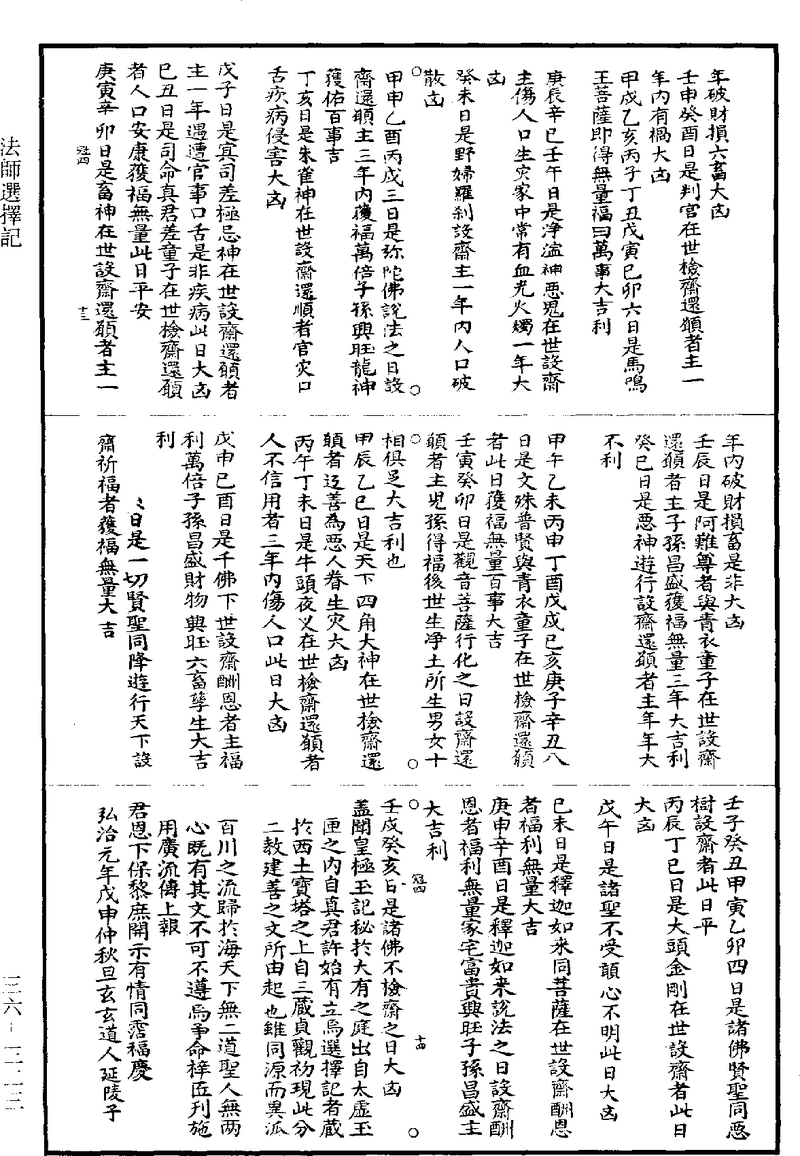 年破財損六畜大凶
壬申癸酉日是判官在世檢齋還願者主一
年内有禍大凶
甲戌乙亥丙子丁丑戊寅己卯六日是馬鳴
王菩薩即得無量福曰萬事大吉利
庚辰辛巳壬午日是淨溢神惡鬼在世設齋
主傷人口生灾家中常有血光火燭一年大
凶
癸未日是野婦羅刹設齋主一年内人口破
散凶
甲申乙酉丙戌三日是弥陀佛說法之日設
齋還願主三年内獲福萬倍子孫興旺龍神
獲佑百事吉
丁亥日是朱雀神在世設齋還順者官灾口
舌疾病侵害大凶
戊子日是冥司差極忌神在世設齋還願者
主一年遇遭官事口舌是非疾病此日大凶
己丑日是司命真君差童子在世檢齋還願
者人口安康獲福無量此日平安
庚寅辛卯日是畜神在世設齋還願者主一
冠四
十三
年内破財損畜是非大凶
壬辰日是阿難尊者與青衣童子在世設齋
還願者主子孫昌盛獲福無量三年大吉利
癸巳日是惡神遊行設齋還願者主年年大
不利
甲午乙未丙申丁酉戊戌己亥庚子辛丑八
日是文殊普賢與青衣童子在世檢齋還願
者此日獲福無量百事大吉
壬寅癸卯日是觀音菩薩行化之日設齋還
願者主兒孫得福後世生淨土所生男女十
相俱足大吉利也
甲辰乙巳日是天下四角大神在世檢齋還
願者返善為惡人眷生灾大凶
丙午丁未日是牛頭夜叉在世檢齋還願者
人不信用者三年内傷人口此日大凶
戊申己酉日是千佛下世設齋酬恩者主福
利萬倍子孫昌盛財物興旺六畜孳生大吉
利
日是一切賢聖同降遊行天下設
齋祈福者獲福無量大吉
壬子癸丑甲寅乙卯四日是諸佛賢聖同惡
樹設齋者此日平
丙辰丁巳日是大頭金剛在世設齋者此日
大凶
戊午日是諸聖不受願心不明此日大凶
己未日是釋迦如來同菩薩在世設齋酬恩
者福利無量大吉
庚申辛酉日是釋迦如來說法之日設齋酬
恩者福利無量家宅富貴興旺子孫昌盛主
大吉利
冠四
十四
壬戌癸亥日是諸佛不檢齋之日大凶
蓋聞皇極玉記秘於大有之庭出自太虛玉
匣之内自真君許始有立焉選擇記者藏
於西土寶塔之上自三藏貞觀初現此分
二教建善之文所由起也雖同源而異派
百川之流歸於海天下無二道聖人無兩
心既有其文不可不遵焉爭命梓匠刋施
用廣流傳上報
君恩下保黎庶開示有情同霑福慶
弘治元年戊申仲秋旦玄玄道人延陵子
法師選擇記
三六－三二三